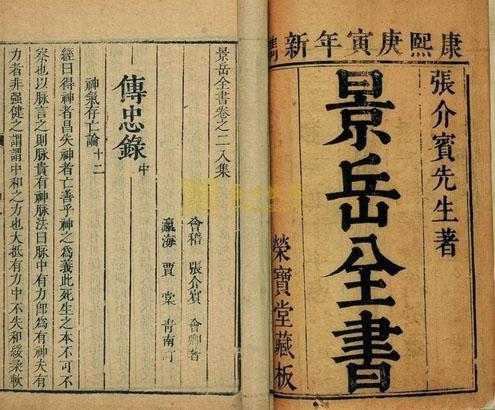 康熙庚寅年新鐫
張介賓先生著
景岳全書
榮寶堂藏板
景岳全書卷之二入集
會稽 張介賓 會卿著
瀛海 賈棠 青南訂
傳忠錄 中
神氣存亡論 十二
經曰得神者昌失神者亡善乎神之為義此死生之本不可不
察也以脉言之則脉貴有神脉法曰脉中有力即為有神夫有
力者非強健之謂謂中和之力也大抵有力中不失和緩柔軟